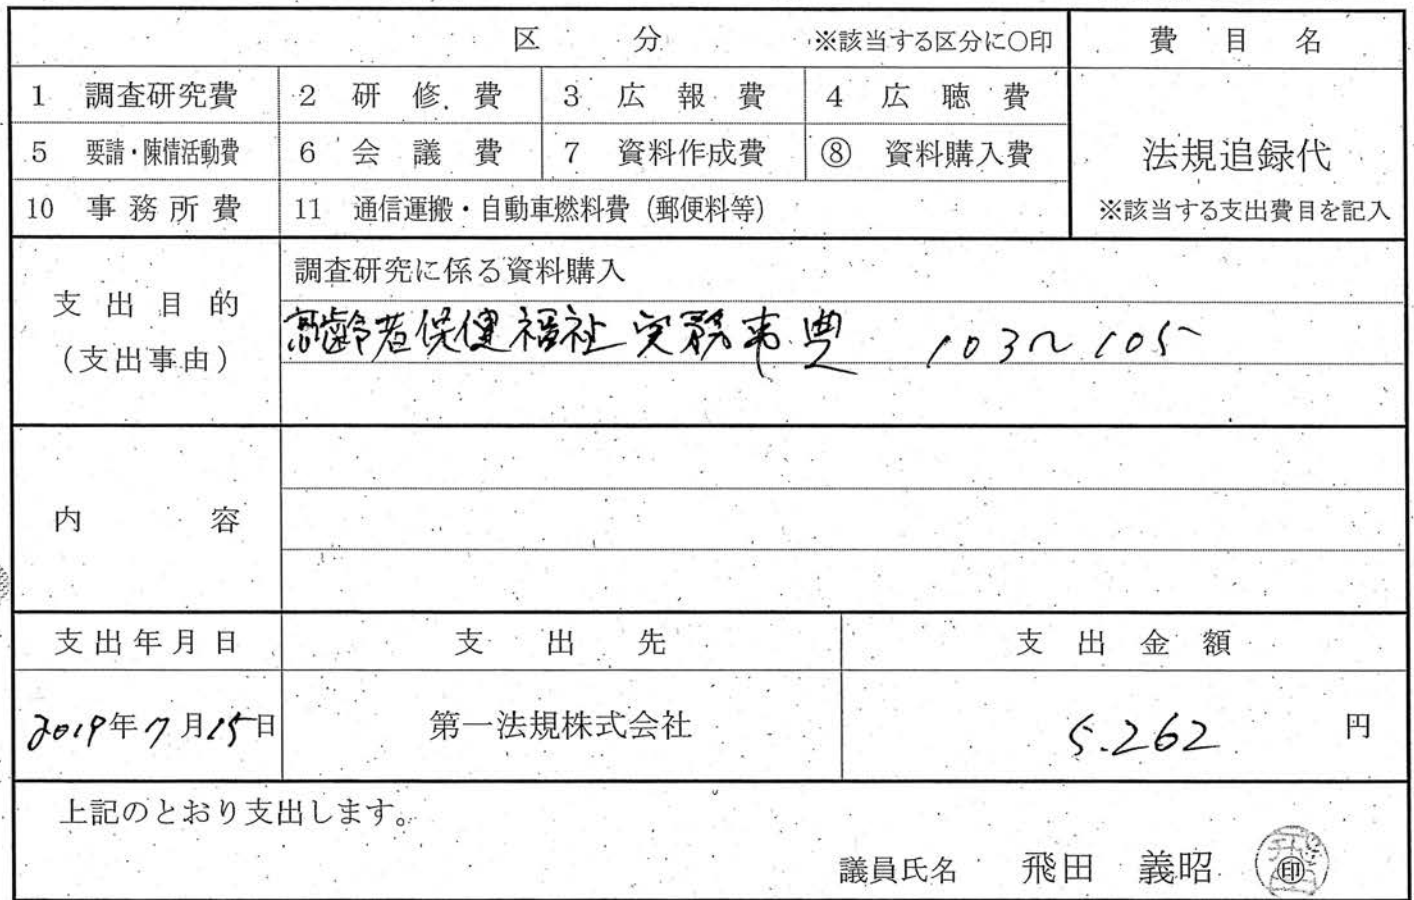 区 分 ※該当する区分に〇印 費目名
1 調査研究費 2 研修費 3 広報費 4 広聴費
5 要請・陳情活動費 6 会議費 7 資料作成費 ⑧ 資料購入費 法規追録代
10 事務所費 11 通信運搬・自動車燃料費（郵便料等） ※該当する支出費目を記入
調査研究に係る資料購入
支出目的
高齢者保健福祉実務事典 103〜105
（支出事由）
内容
支出年月日 支出先 支出金額
2019年7月15日 第一法規株式会社 5.262 円
上記のとおり支出します。
議員氏名 飛田 義昭 ㊞